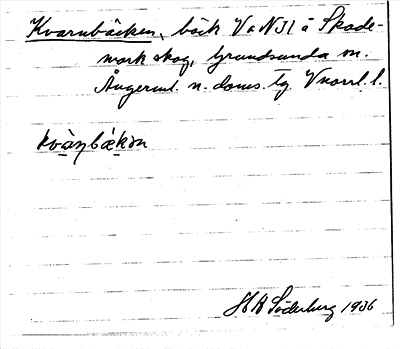 Kvarnbäcken, bäck V o N Il å Skade-
mark skog, Grundsunda sn.
Ångerml. n. doms. tg. Vnorrl. l.
kvàṇbǽkən
H A Söderberg 1936